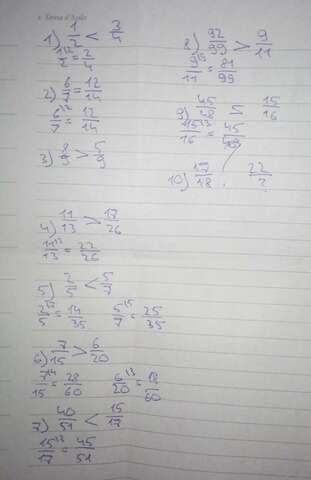 s. Teresa d'Avila
1) 1/2 < 3/4
1/2 = 2/4
2) 6/7 = 12/14
6/7 = 12/14
3) 8/9 > 5/9
4) 11/13 > 17/26
11/13 = 22/26
5) 2/5 < 5/7
2/5 = 14/35 5/7 = 25/35
6) 7/15 > 6/20
7/15 = 28/60 6/20 = 18/60
7) 40/51 < 15/17
15/17 = 45/51
8) 92/99 > 9/11
9/11 = 81/99
9) 45/48 = 15/16
15/16 = 45/48
10) 17/18 22/?